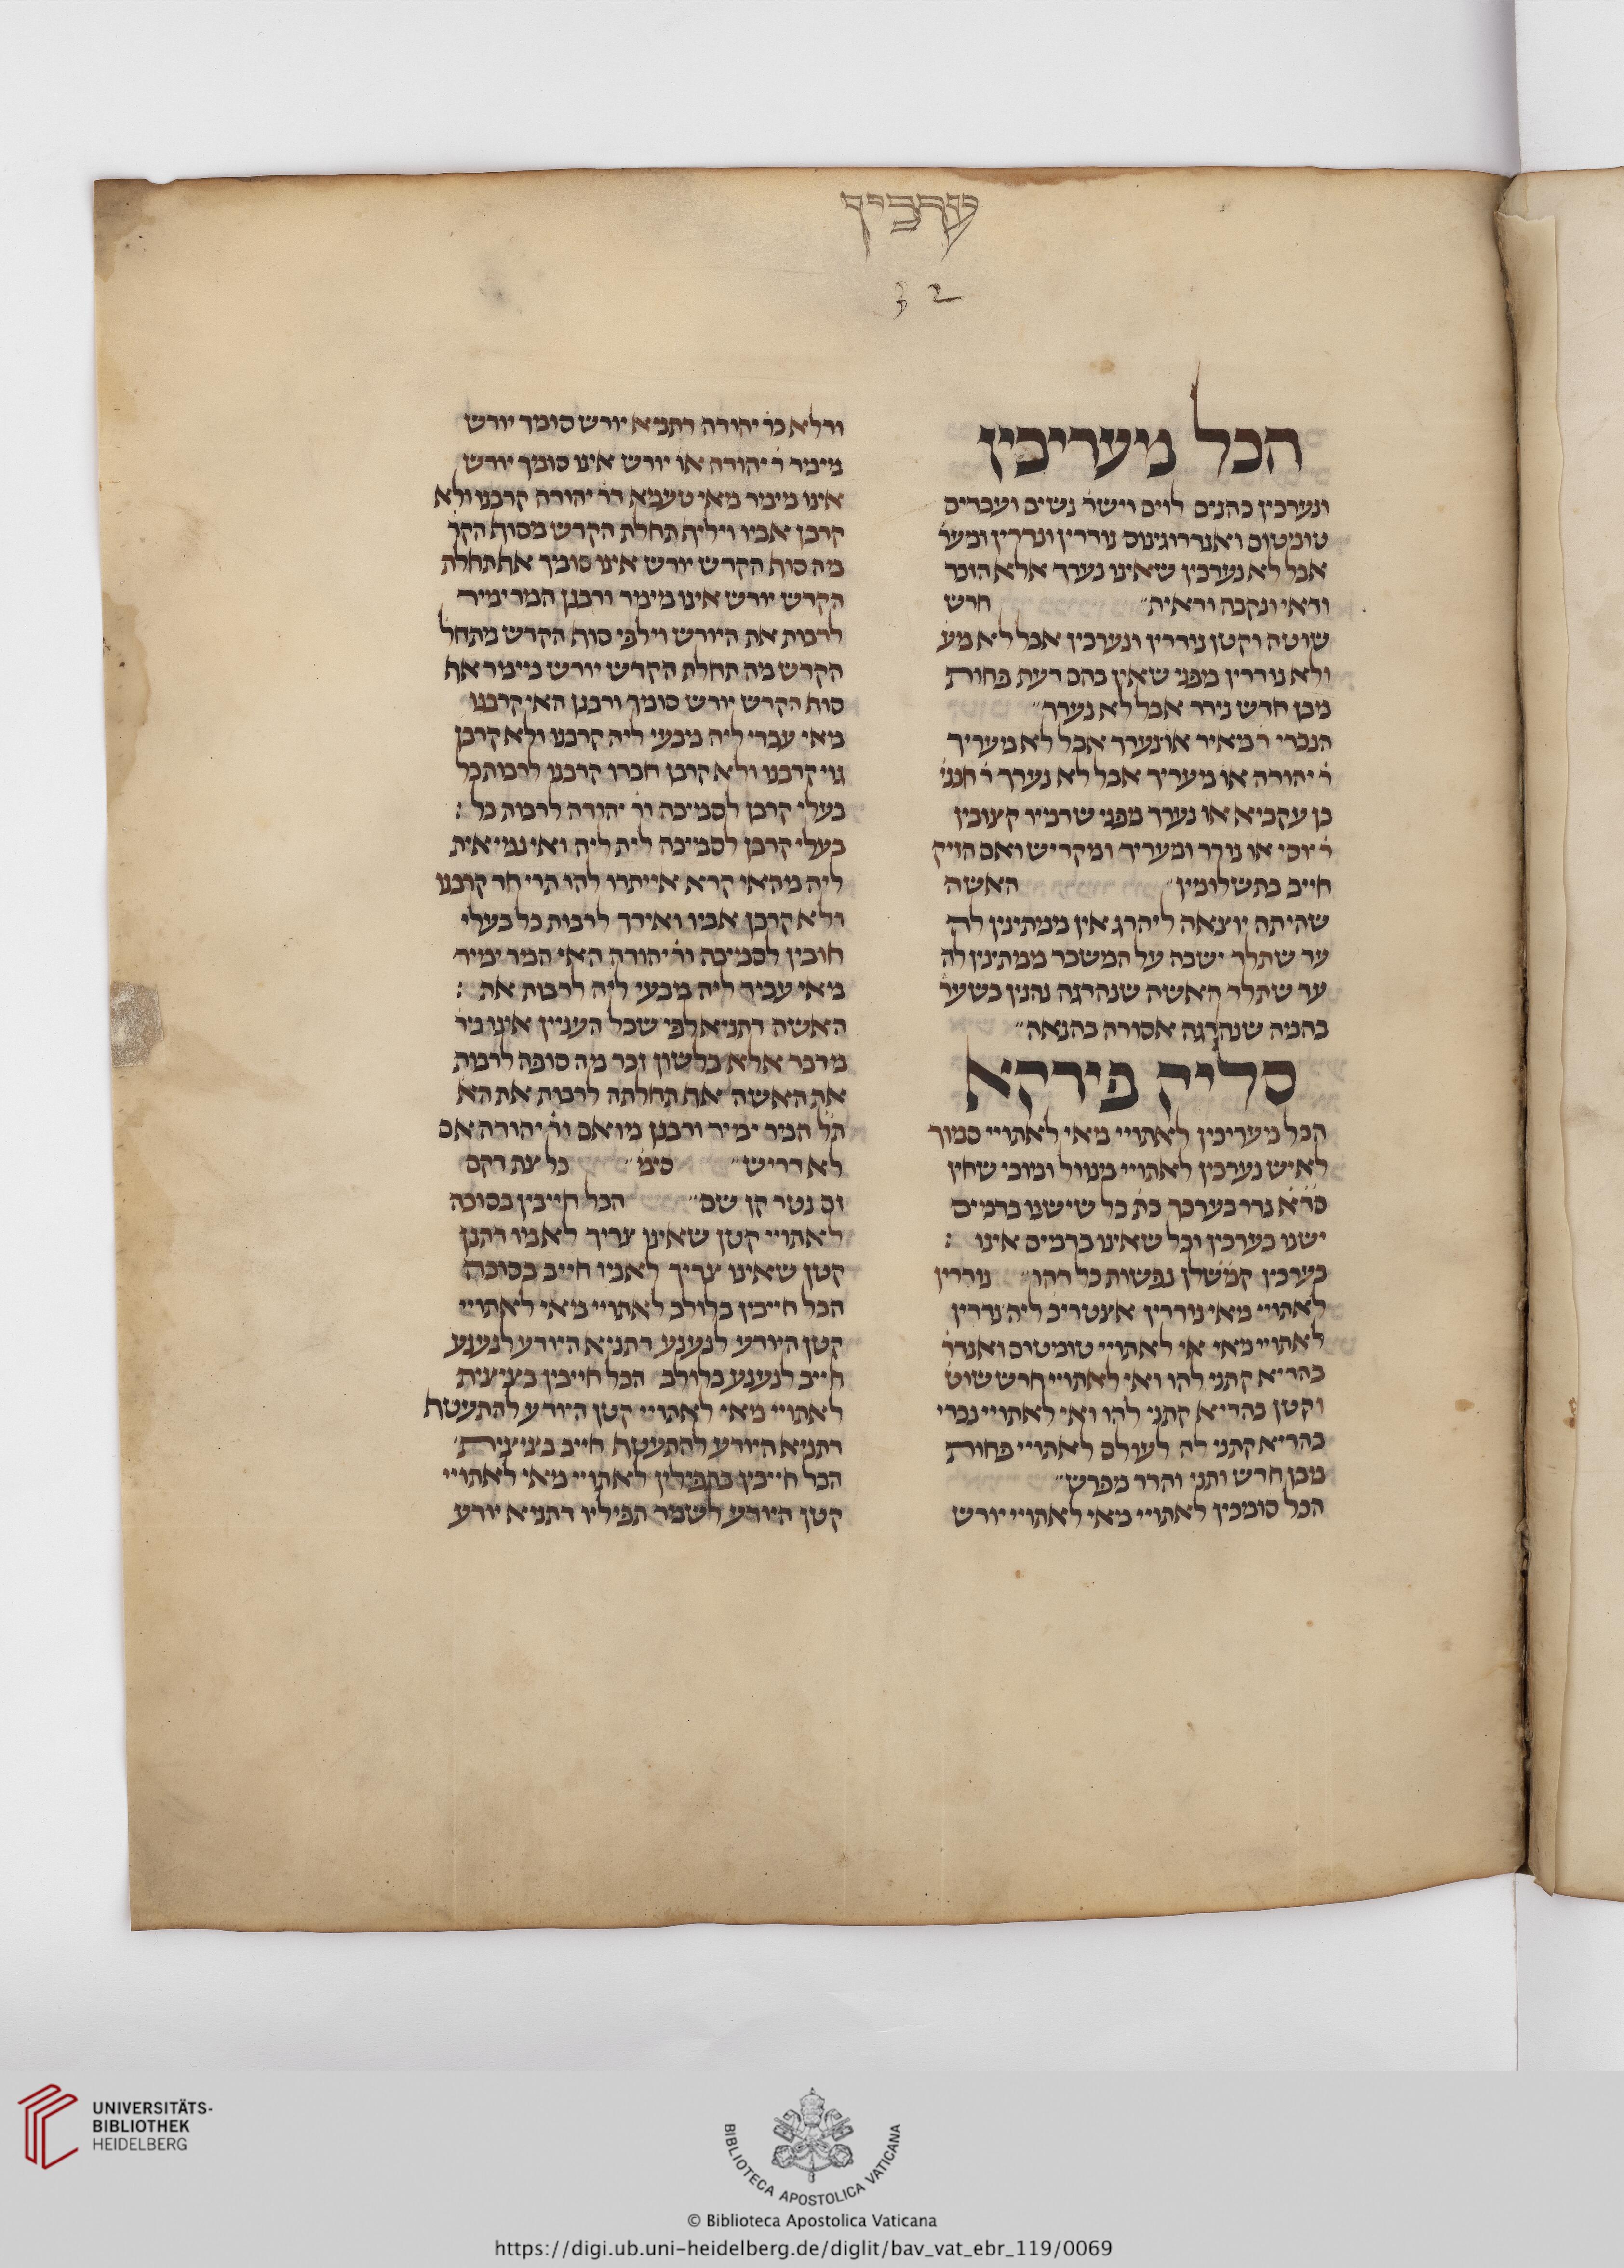 ערכין
32
הכל מעריכין
ונערכין כהנים לוים וישר' נשים ועבדים
טומטום ואנדרוגינוס נודרין ונדרין ומער'
אבל לא נערכין שאינו נערך אלא הזכר
ודאי ונקבה ודאית״ חרש
שוטה וקטן נודרין ונערכין אבל לא מע'
ולא נודרין מפני שאין בהם דעת פחות
מבן חדש נידר אבל לא נערך״
הנכרי ר' מאיר או' נערך אבל לא מעריך
ר' יהודה או' מעריך אבל לא נערך ר' חנני'
בן עקביא או' נערך מפני שדמיו קצובין
ר' יוסי או' נודר ומעריך ומקדיש ואם הזיק
חייב בתשלומין״ האשה
שהיתה יוצאה ליהרג אין ממתינין לה
עד שתלד ישבה על המשבר ממתינין לה
עד שתלד האשה שנהרגה נהנין בשער'
בהמה שנהרגה אסורה בהנאה״
סליק פירקא
הכל מעריכין לאתויי מאי לאתויי סמוך
לאיש נערכין לאתויי מנוול ומוכי שחין
ס'ד'א' נדר בערכך כת' כל שישנו בדמים
ישנו בערכין וכל שאינו בדמים אינו :
בערכין קמ'ש'לן נפשות כל דהו״ נודרין
לאתויי מאי נודרין איצטריכ' ליה נידרין
לאתויי מאי אי לאתויי טומטום ואנדר'
בהדיא קתני להו ואי לאתויי חרש שוט'
וקטן בהדיא קתני להו ואי לאתויי נכרי
בהדיא קתני לה לעולם לאתויי פחות
מבן חדש ותני והדר מפרש״
הכל סומכין לאתויי מאי לאתויי יורש
ודלא כר' יהודה דתניא יורש סומך יורש
מימר ר' יהודה או' יורש אינו סומך יורש
אינו מימר מאי טעמא דר' יהודה קרבנו ולא
קרבן אביו ויליף תחלת הקדש מסוף הקד'
מה סוף הקדש יורש אינו סומך אף תחלת
הקדש יורש אינו מימר ורבנן המר ימיר
לרבות את היורש וילפי סוף הקדש מתחל'
הקדש מה תחלת הקדש יורש מימר אף
סוף הקדש יורש סומך ורבנן האי קרבנו
מאי עבדי ליה מבעי ליה קרבנו ולא קרבן
גוי קרבנו ולא קרבן חברו קרבנו לרבות כל
בעלי קרבן לסמיכה ור' יהודה לרבות כל :
בעלי קרבן לסמיכה לית ליה ואי נמי אית
ליה מהאי קרא אייתרו להו תרי חד קרבנו
ולא קרבן אביו ואידך לרבות כל בעלי
חובין לסמיכה ור' יהודה האי המר ימיר
מאי עביד ליה מבעי ליה לרבות את :
האשה דתניא לפי שכל העניין אינו מד'
מדבר אלא בלשון זכר מה סופה לרבות
את האשה את תחלתה לרבות את הא'
ת'ל' המר ימיר ורבנן מואם ור' יהודה אם
לא דריש״ סימ'״ כל צת דקם
זם נטר קן שם״ הכל חייבין בסוכה
לאתויי קטן שאינו צריך לאמו דתנן
קטן שאינו צריך לאביו חייב בסוכה
הכל חייבין בלולב לאתויי מאי לאתויי
קטן היודע לנענע דתניא היודע לנענע
חייב לנענע בלולב הכל חייבין בציצית
לאתויי מאי לאתויי קטן היודע להתעטף
דתניא היודע להתעטף חייב בציצית
הכל חייבין בתפילין לאתויי מאי לאתויי
קטן היודע לשמר תפיליו דתניא יודע
UNIVERSITÄTS-
BIBLIOTHEK
HEIDELBERG
BIBLIOTECA APOSTOLICA VATICANA
© Biblioteca Apostolica Vaticana
https://digi.ub.uni-heidelberg.de/diglit/bav_vat_ebr_119/0069